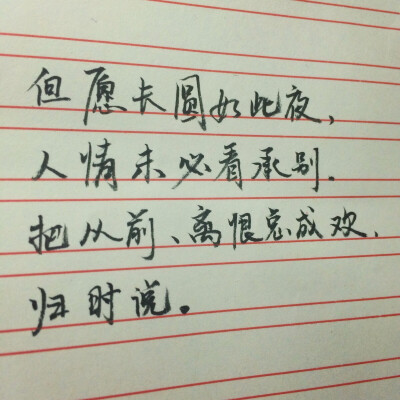 但愿长圆如此夜，
人情未必看承别．
把从前、离恨总成欢，
归时说。